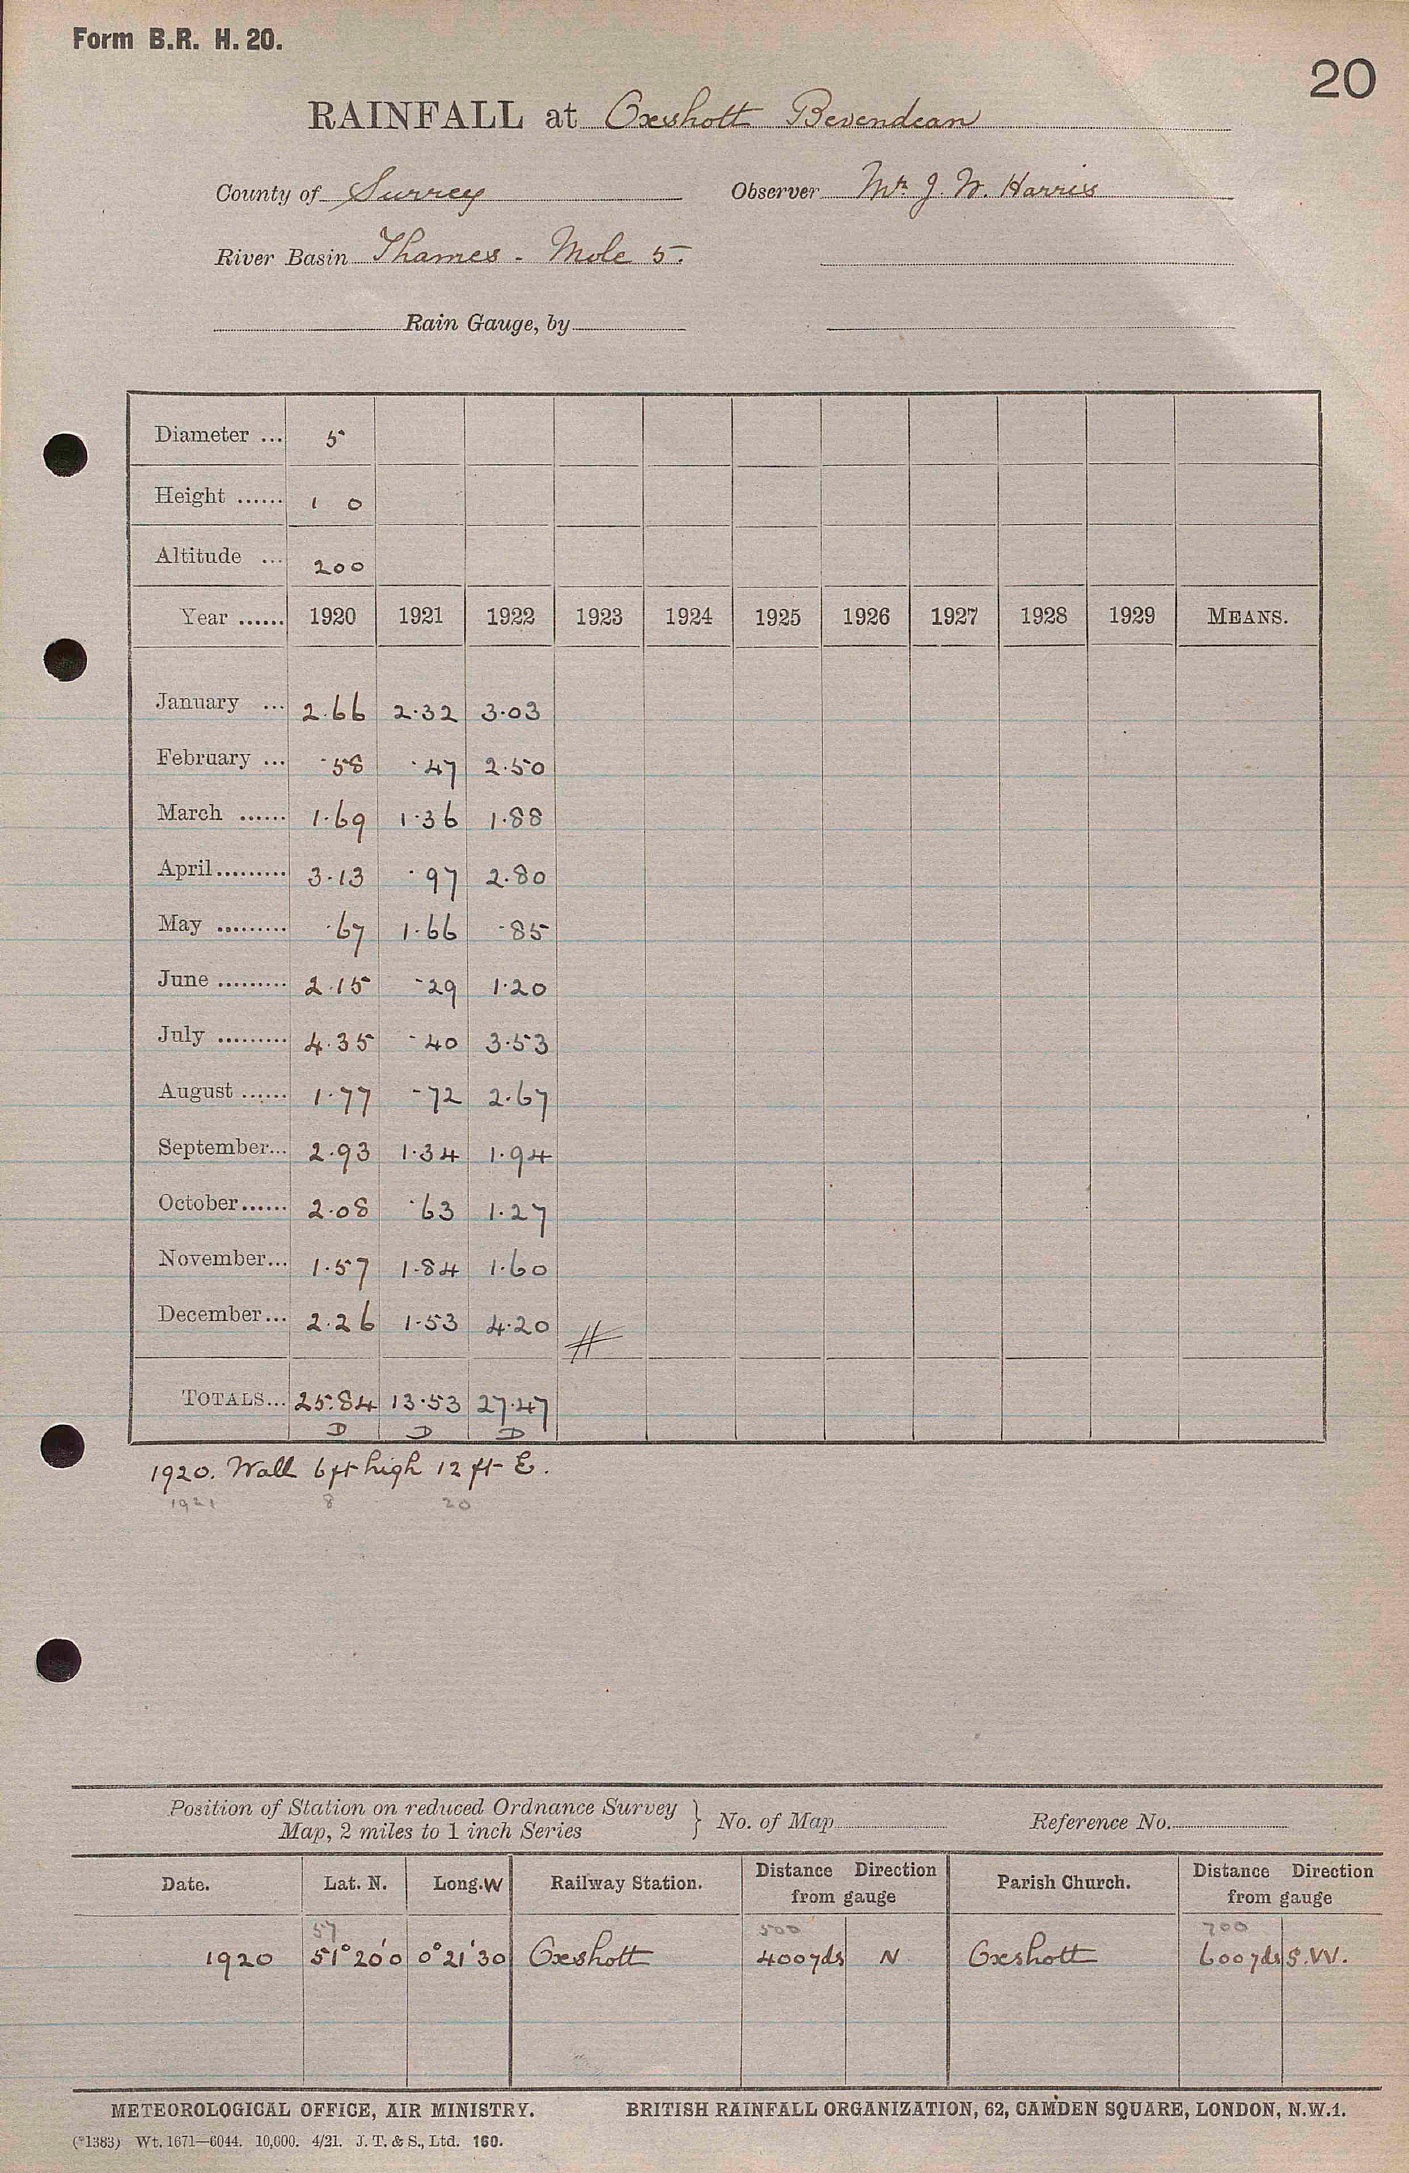 Form B.R. H. 20.
20
RAINFALL at Oxshott Bevendean
County of Surrey Observer Mr. J. W. Harris
River Basin Thames - Mole 5.
Rain Gauge, by
Diameter ... 5
Height ...... 1 0
Altitude ... 200
Year ...... 1920 1921 1922 1923 1924 1925 1926 1927 1928 1929 MEANS.
January ... 2.66 2.32 3.03
February ... .58 .47 2.50
March ...... 1.69 1.36 1.88
April ......... 3.13 .97 2.80
May ......... .67 1.66 .85
June ......... 2.15 .29 1.20
July ......... 4.35 .40 3.53
August ...... 1.77 .72 2.67
September... 2.93 1.34 1.94
October...... 2.08 .63 1.27
November... 1.57 1.84 1.60
December... 2.26 1.53 4.20
TOTALS... 25.84 13.53 27.47
D D D
1920. Wall 6ft high 12 ft E.
1921 8 20
Position of Station on reduced Ordnance Survey
Map, 2 miles to 1 inch Series } No. of Map Reference No.
Date. Lat. N. Long. W Railway Station. Distance Direction from gauge Parish Church. Distance Direction from gauge
57 500 700
1920 51° 20' 0 0° 21' 30 Oxshott 400 yds N Oxshott 600 yds S.W.
METEOROLOGICAL OFFICE, AIR MINISTRY. BRITISH RAINFALL ORGANIZATION, 62, CAMDEN SQUARE, LONDON, N.W.1.
(*1383) Wt. 1671—6044. 10,000. 4/21. J. T. & S., Ltd. 160.